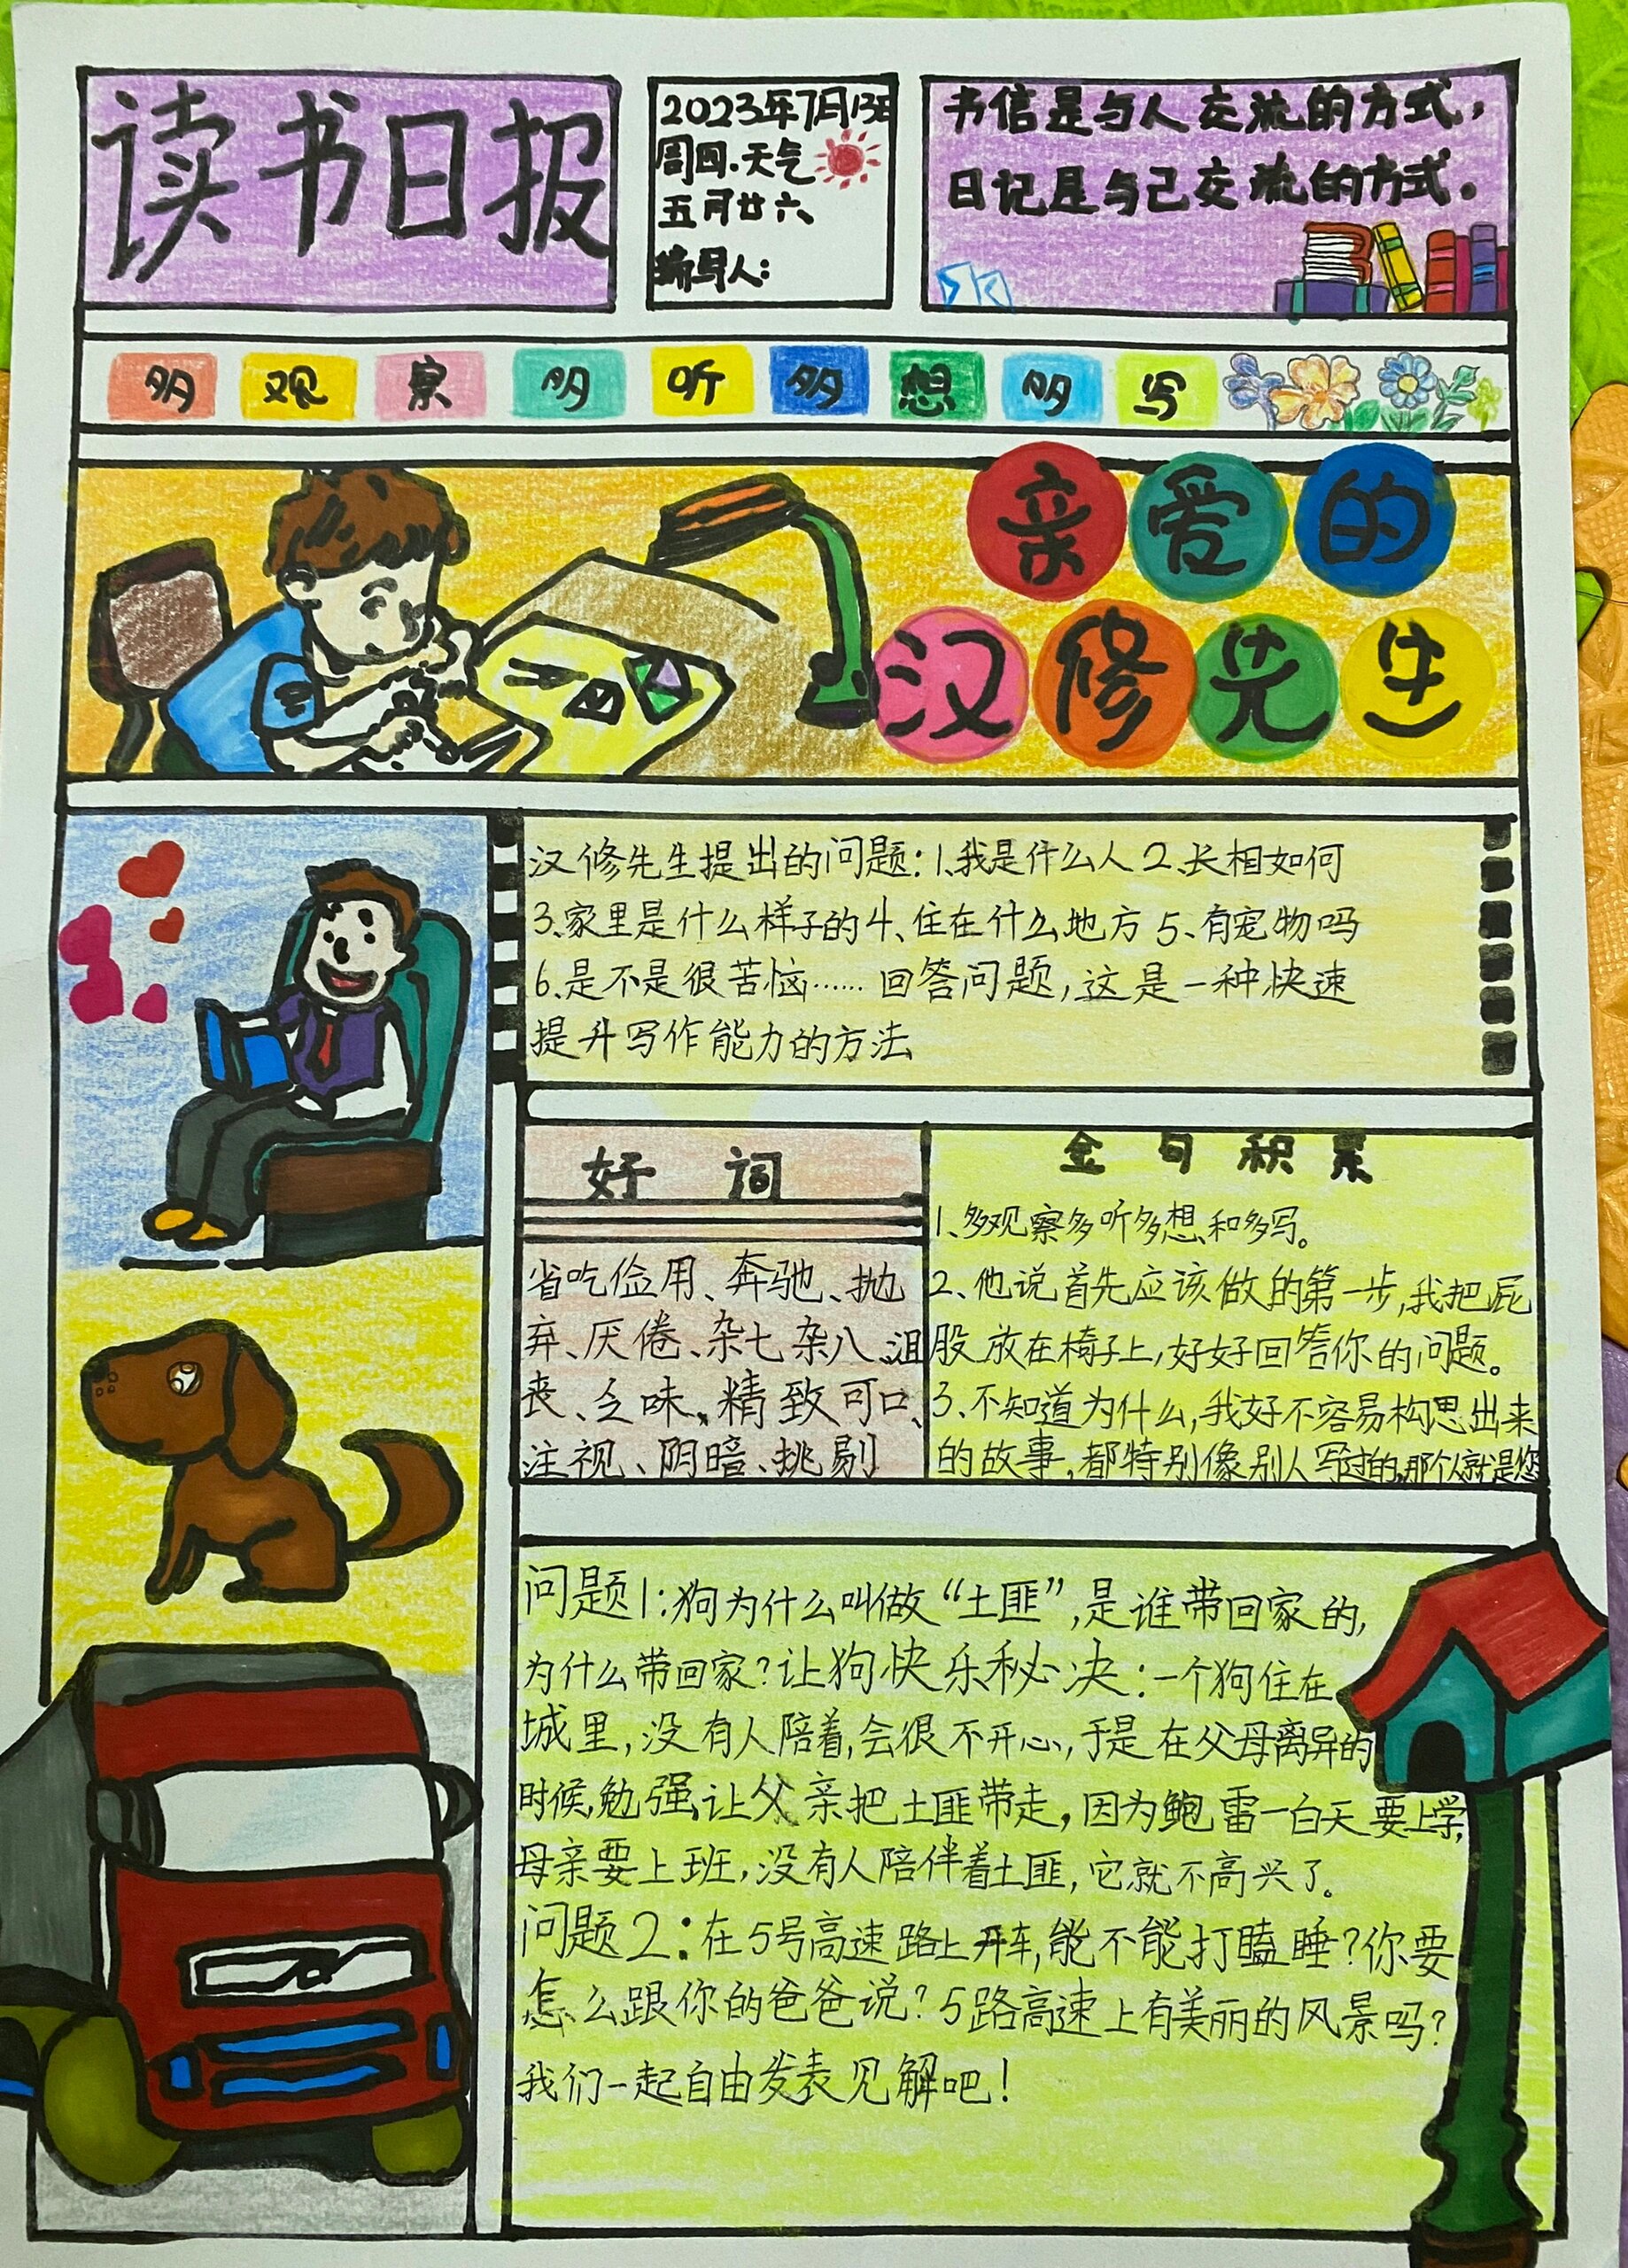 读书日报
2023年7月13日
周四.天气
五月廿六
编写人：
书信是与人交流的方式，
日记是与己交流的方式。
多观察多听多想多写
亲爱的
汉修先生
汉修先生提出的问题：1、我是什么人 2、长相如何
3、家里是什么样子的 4、住在什么地方 5、有宠物吗
6、是不是很苦恼…… 回答问题，这是一种快速
提升写作能力的方法
好词
省吃俭用、奔驰、抛
弃、厌倦、杂七杂八、沮
丧、乏味、精致可口、
注视、阴暗、挑剔
金句积累
1、多观察多听多想和多写。
2、他说首先应该做的第一步，我把屁
股放在椅子上，好好回答你的问题。
3、不知道为什么，我好不容易构思出来
的故事，都特别像别人写过的，那个人就是您
问题1：狗为什么叫做“土匪”，是谁带回家的，
为什么带回家？让狗快乐秘决：一个狗住在
城里，没有人陪着，会很不开心，于是在父母离异的
时候，勉强让父亲把土匪带走，因为鲍雷一白天要上学，
母亲要上班，没有人陪伴着土匪，它就不高兴了。
问题2：在5号高速路上开车，能不能打瞌睡？你要
怎么跟你的爸爸说？5路高速上有美丽的风景吗？
我们一起自由发表见解吧！